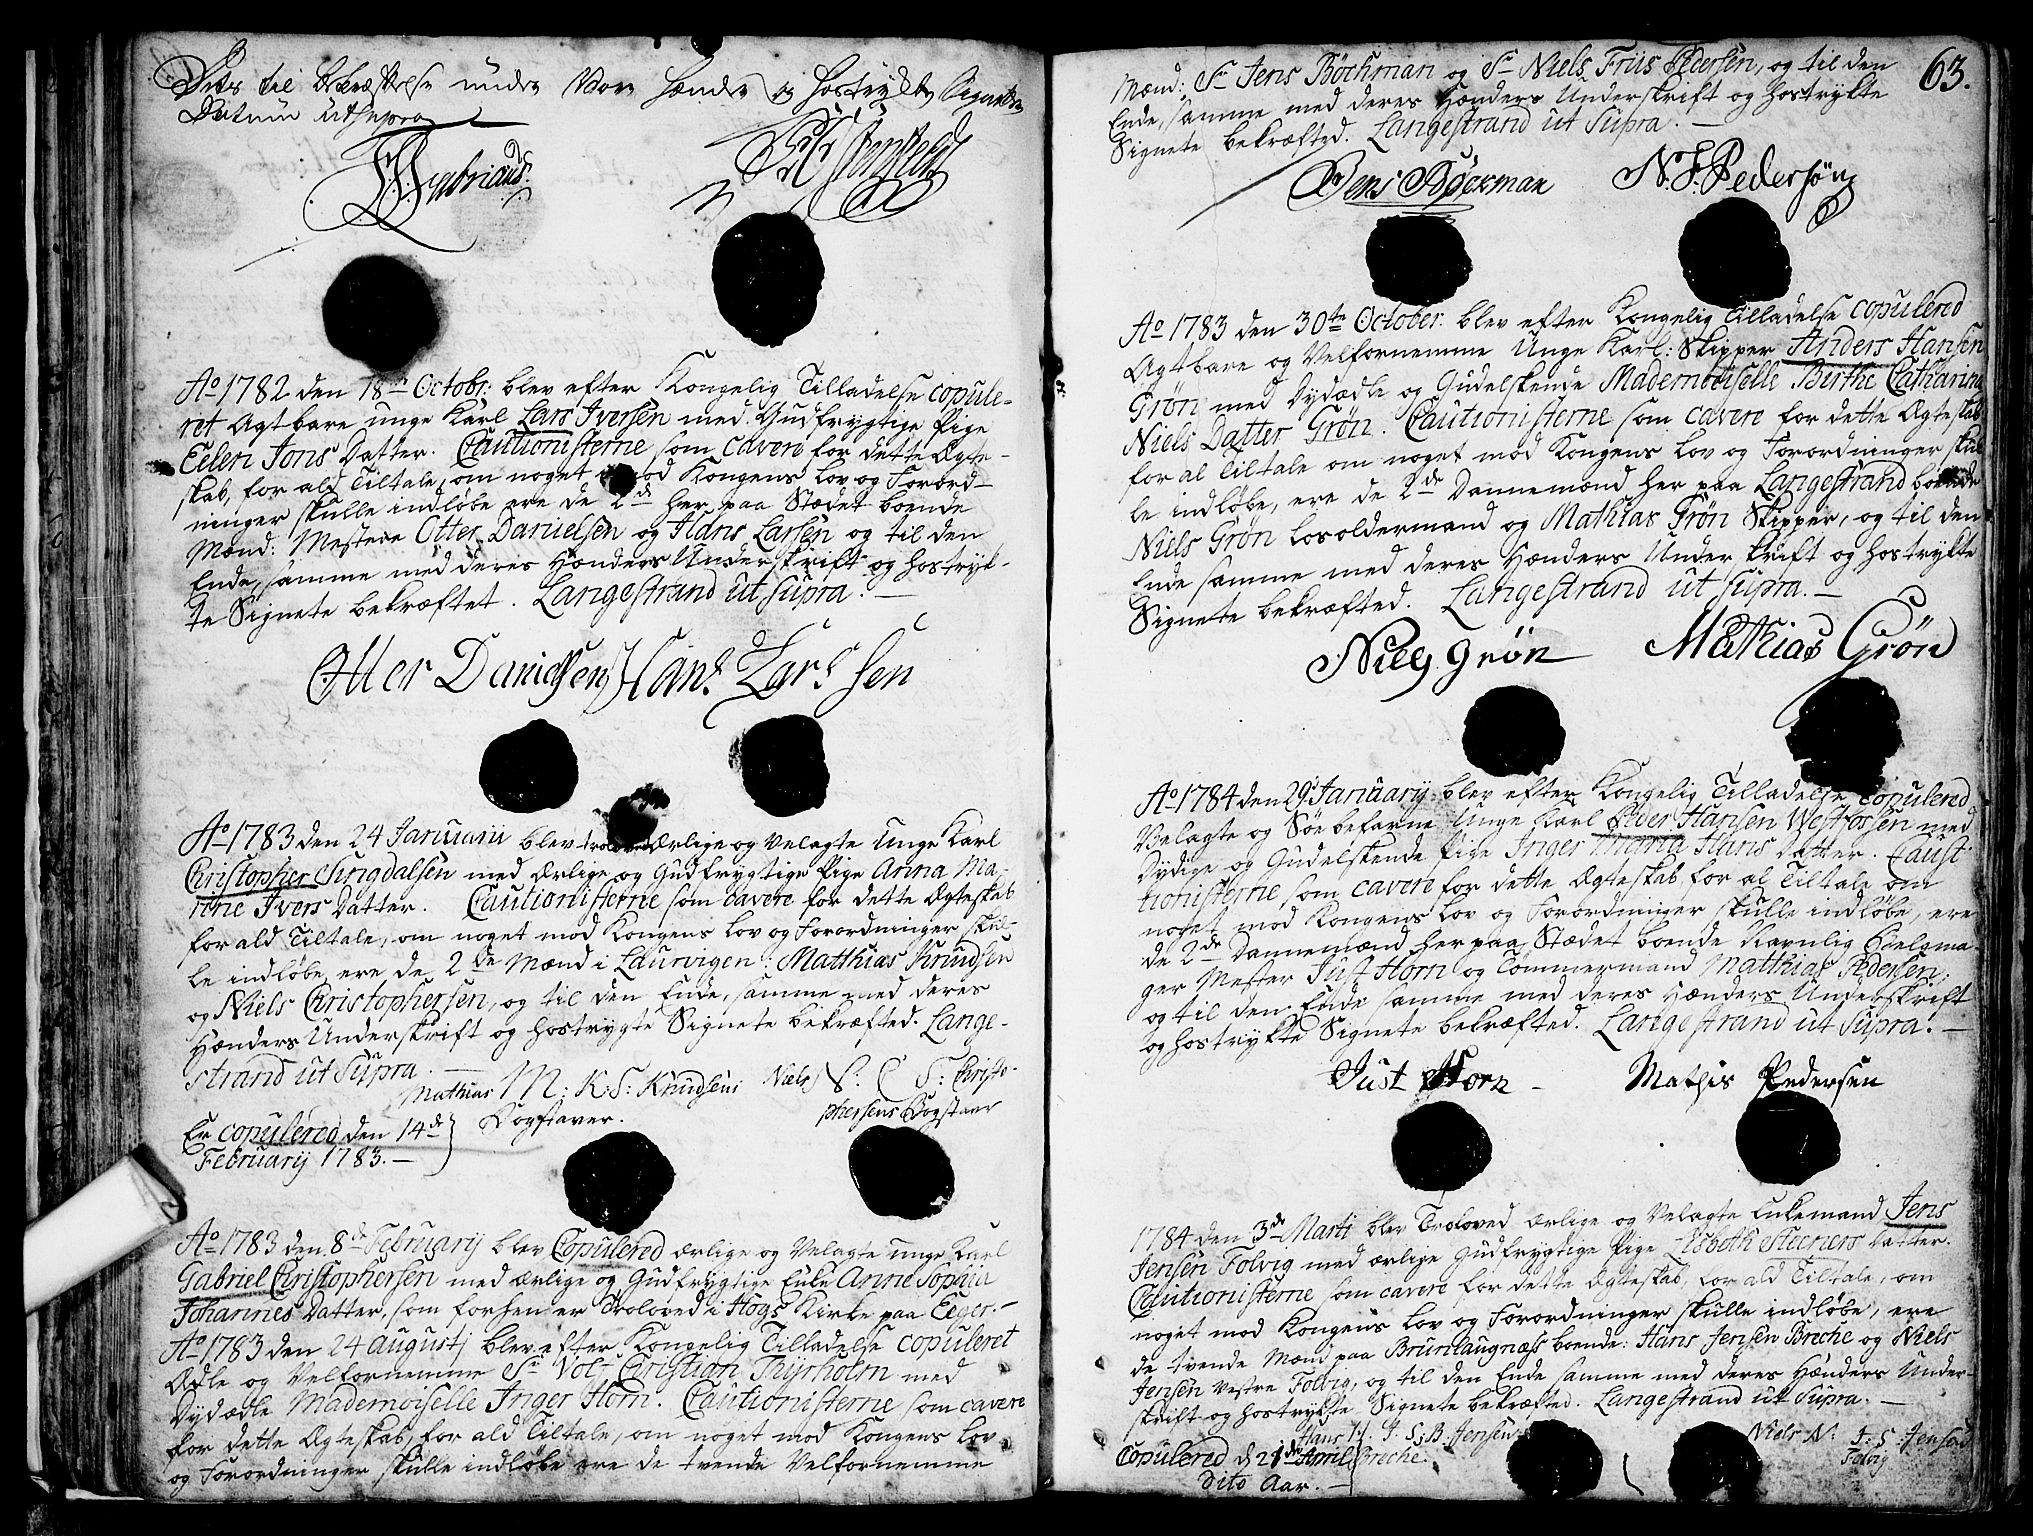 Dets til Bekræftelse under Vore Hænder og hostrykte Signeter
Datum utsupra

A<sup>o</sup> 1782 den 18<sup>n</sup> Octobr: blev efter Kongelig Tilladelse copule-
ret Agtbare unge Karl Lars Iversen med Gudfrygtige Pige
Eelen Jons Datter. Cautionisterne som cavere for dette Ægte-
skab, for ald Tiltale, om noget mod Kongens Lov og Forord-
ninger skulle indløbe ere de 2<sup>de</sup> her paa Stædet boende
Mænd: Mestere Otter Danielsen og Hans Larsen og til den
Ende, samme med deres Hænders Underskrift og hostryk-
te Signete bekræftet. Langestrand ut Supra. —
Otter Danielsen Hans Larssen
A<sup>o</sup> 1783 den 24 Januarii blev trolovet ærlige og Velagte Unge Karl
Christopher Singdalsen med Ærlige og Gudfrygtige Pige Anna Ma-
rthe Ivers Datter. Cautionisterne som cavere for dette Ægteskab
for ald Tiltale, om noget mod Kongens Lov og Forordninger skul-
le indløbe ere de 2<sup>de</sup> Mænd i Laurvigen: Matthias Knudsen
og Niels Christophersen, og til den Ende, samme med deres
Hænders Underskrift og hostrygte Signete bekræfted. Lange-
strand ut Supra. —
Mathias M: K: S: Knudsens Niels S: C S: Christo-
Bogstaver. phersens Bogstaver
Er copulered den 14<sup>de</sup>
February 1783. —
A<sup>o</sup> 1783 den 8<sup>de</sup> February blev Copulered ærlige og Velagte unge Karl
Gabriel Christophersen med ærlige og Gudfrygtige Enke Anne Sophia
Johannes Datter, som forhen er Troloved i Hogs Kirke paa Eeger. —
A<sup>o</sup> 1783 den 24 Augustj blev efter Kongelig Tilladelse copuleret
Ædle og Velfornemme S<sup>r</sup> Vol: Christian Thyrholm med
Dydædle Mademoiselle Inger Horn. Cautionisterne som cavere
for dette Ægteskab, for ald Tiltale, om noget mod Kongens Lov
og Forordninger skulle indløbe ere de tvende Velfornemme
63.
Mænd: S<sup>r</sup> Jens Böchman og S<sup>r</sup> Niels Friis Pedersen, og til den
Ende, samme med deres Hænders Underskrift og hostrykte
Signete bekræfted. Langestrand ut Supra. —
Jens Böckman N. F. Pedersön
A<sup>o</sup> 1783 den 30<sup>te</sup> October: blev efter Kongelig Tilladelse copulered
Agtbare og Velfornemme Unge Karl: Skipper Anders Hansen
Grön med Dydædle og Gudelskende Mademoiselle Birthe Catharina
Niels Datter Grön. Cautionisterne som cavere for dette Ægteskab
for al Tiltale om noget mod Kongens Lov og Forordninger skul-
le indløbe, ere de 2<sup>de</sup> Dannemænd her paa Langestrand boende
Niels Grön Losoldermand og Mathias Grön Skipper, og til den
Ende samme med deres Hænders Underskrift og hostrykte
Signete bekræfted. Langestrand ut Supra. —
Niels Grön Mathias Grön
A<sup>o</sup> 1784 den 29 Januarij blev efter Kongelig Tilladelse copulered
Velagte og Søebefarne Unge Karl Peder Hansen Westfossen med
Dydige og Gudelskende Pige Inger Maria Hans Datter. Caut-
tionisterne som cavere for dette Ægteskab, for al Tiltale om
noget mod Kongens Lov og Forordninger skulle indløbe, ere
de 2<sup>de</sup> Dannemænd her paa Stædet boende Navnlig Bælgma-
ger Mester Just Horn og Tømmermand Matthias Pedersen;
og til den Ende samme med deres Hænders Underskrift
og hostrykte Signete bekræfted. Langestrand ut Supra. —
Just Horn Mathis Pedersen
1784 den 3<sup>de</sup> Marti blev Troloved ærlige og Velagte Enkemand Jens
Jensen Folvig med ærlige gudfrygtige Pige Lisbeth Steeners Datter.
Cautionisterne som cavere for dette Ægteskab, for ald Tiltale, om
noget mod Kongens Lov og Forordninger skulle indløbe, ere
de tvende Mænd paa Brunlaugnæss boende: Hans Jensen Breche og Niels
Jensen Vestre Folvig, og til den Ende samme med deres Hænders Under-
skrift og hostrykte Signete bekræfted. Langestrand ut Supra. —
Hans H. J. S: B. Jensen Niels N: J: S: Jensen
Copulered d 21<sup>de</sup> April Breche. Folvig
dito Aar. —